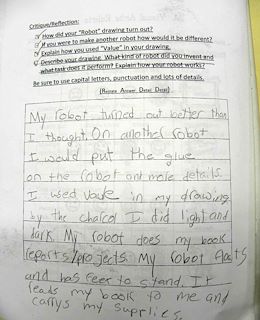 Critique/Reflection:
How did your "Robot" drawing turn out?
If you were to make another robot how would it be different?
Explain how you used "Value" in your drawing.
Describe your drawing. What kind of robot did you invent and
what task does it perform? Explain how your robot works?
Be sure to use capital letters, punctuation and lots of details.
(Restate Answer Detail Detail)
My robot turned out better than
I thought. On another robot
I would put the glue
on the robot and more details.
I used value in my drawing
by the charcol I did light and
dark. My robot does my book
reports/projects. My robot floats
and has feer to stand. It
reads my book to me and
carrys my supplies.